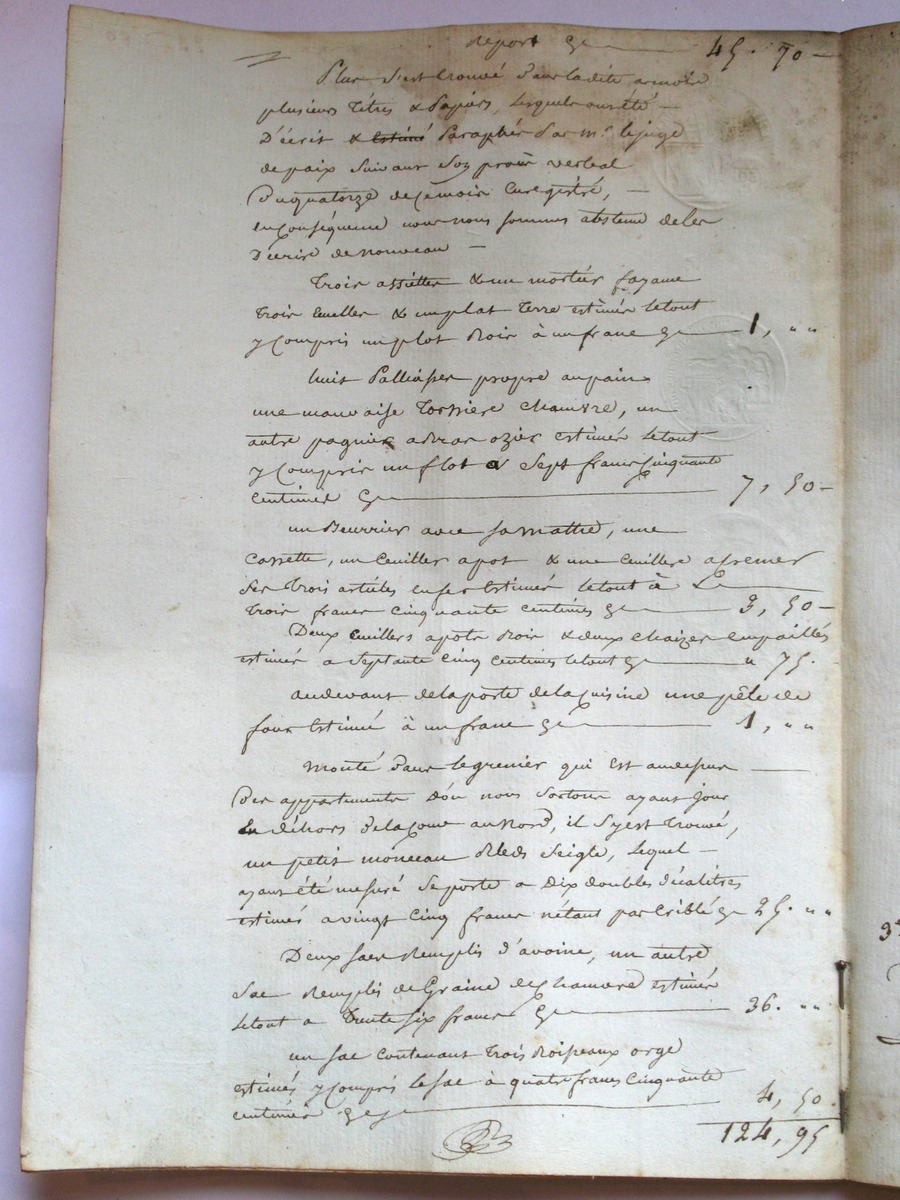 Report Cy 45. 70
Plus s'est trouvé dans ladite armoire
plusieurs titres & Papiers, lesquels ont été
Décrit & estimé Paraphés Par mr. le juge
de paix suivant son procès verbal
Du quatorze de ce mois Enregistré,
en Conséquence nous nous sommes abstenu de les
Décrire de nouveau
Trois assiettes & un mortier fayance
trois Cuelles & un plat Terre estimés le tout
y Compris un plot Bois à un franc Cy 1, " "
huit Palliasses propre au pain
une mauvaise Chanvre, un
autre pagnier a bras ozier estimés le tout
y Compris un flot a Sept francs Cinquante
Centimes Cy 7, 50
un Beurrier avec sa matte, une
Cassette, un Cuiller a pot & une Cuillere a
Ses Trois articles en fer Estimés le tout à
Trois francs Cinquante Centimes Cy 3, 50
Deux Cuillers a pots Bois & deux Chaizes empaillés
estimés a Septante Cinq Centimes le tout Cy " 75.
au devant de la porte de la Cuisine une pêle de
four Estimé à un franc Cy 1, " "
Monté Dans le grenier qui Est au dessus
Des appartements d'ou nous Sortons ayant jour
En déhors de la Cour au Nord, il s'y est Trouvé,
un petit monceau Bleds Seigle, Lequel
ayant été mesuré Se porte a Dix doubles décalitres
estimés a vingt Cinq francs n'étant pas Criblé Cy 25. " "
Deux Sacs Remplis d'avoine, un autre
Sac Remplis de Graine de Chanvre estimés
le tout a Trente Six francs Cy 36. " "
un Sac Contenant Trois Boisseaux orge
estimés y Compris le Sac à quatre francs Cinquante
Centimes Cy 4, 50.
124, 95